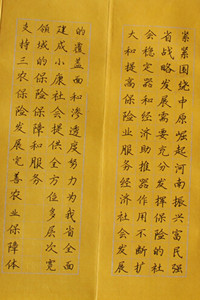 紧紧围绕中原崛起河南振兴富民强
省战略发展需要充分发挥保险的社
会稳定器和经济助推器作用不断扩
大和提高保险业服务经济社会发展
的覆盖面和渗透度努力为我省全面
建成小康社会提供全方位多层次宽
领域的保险保障和服务
支持三农保险发展完善农业保障体